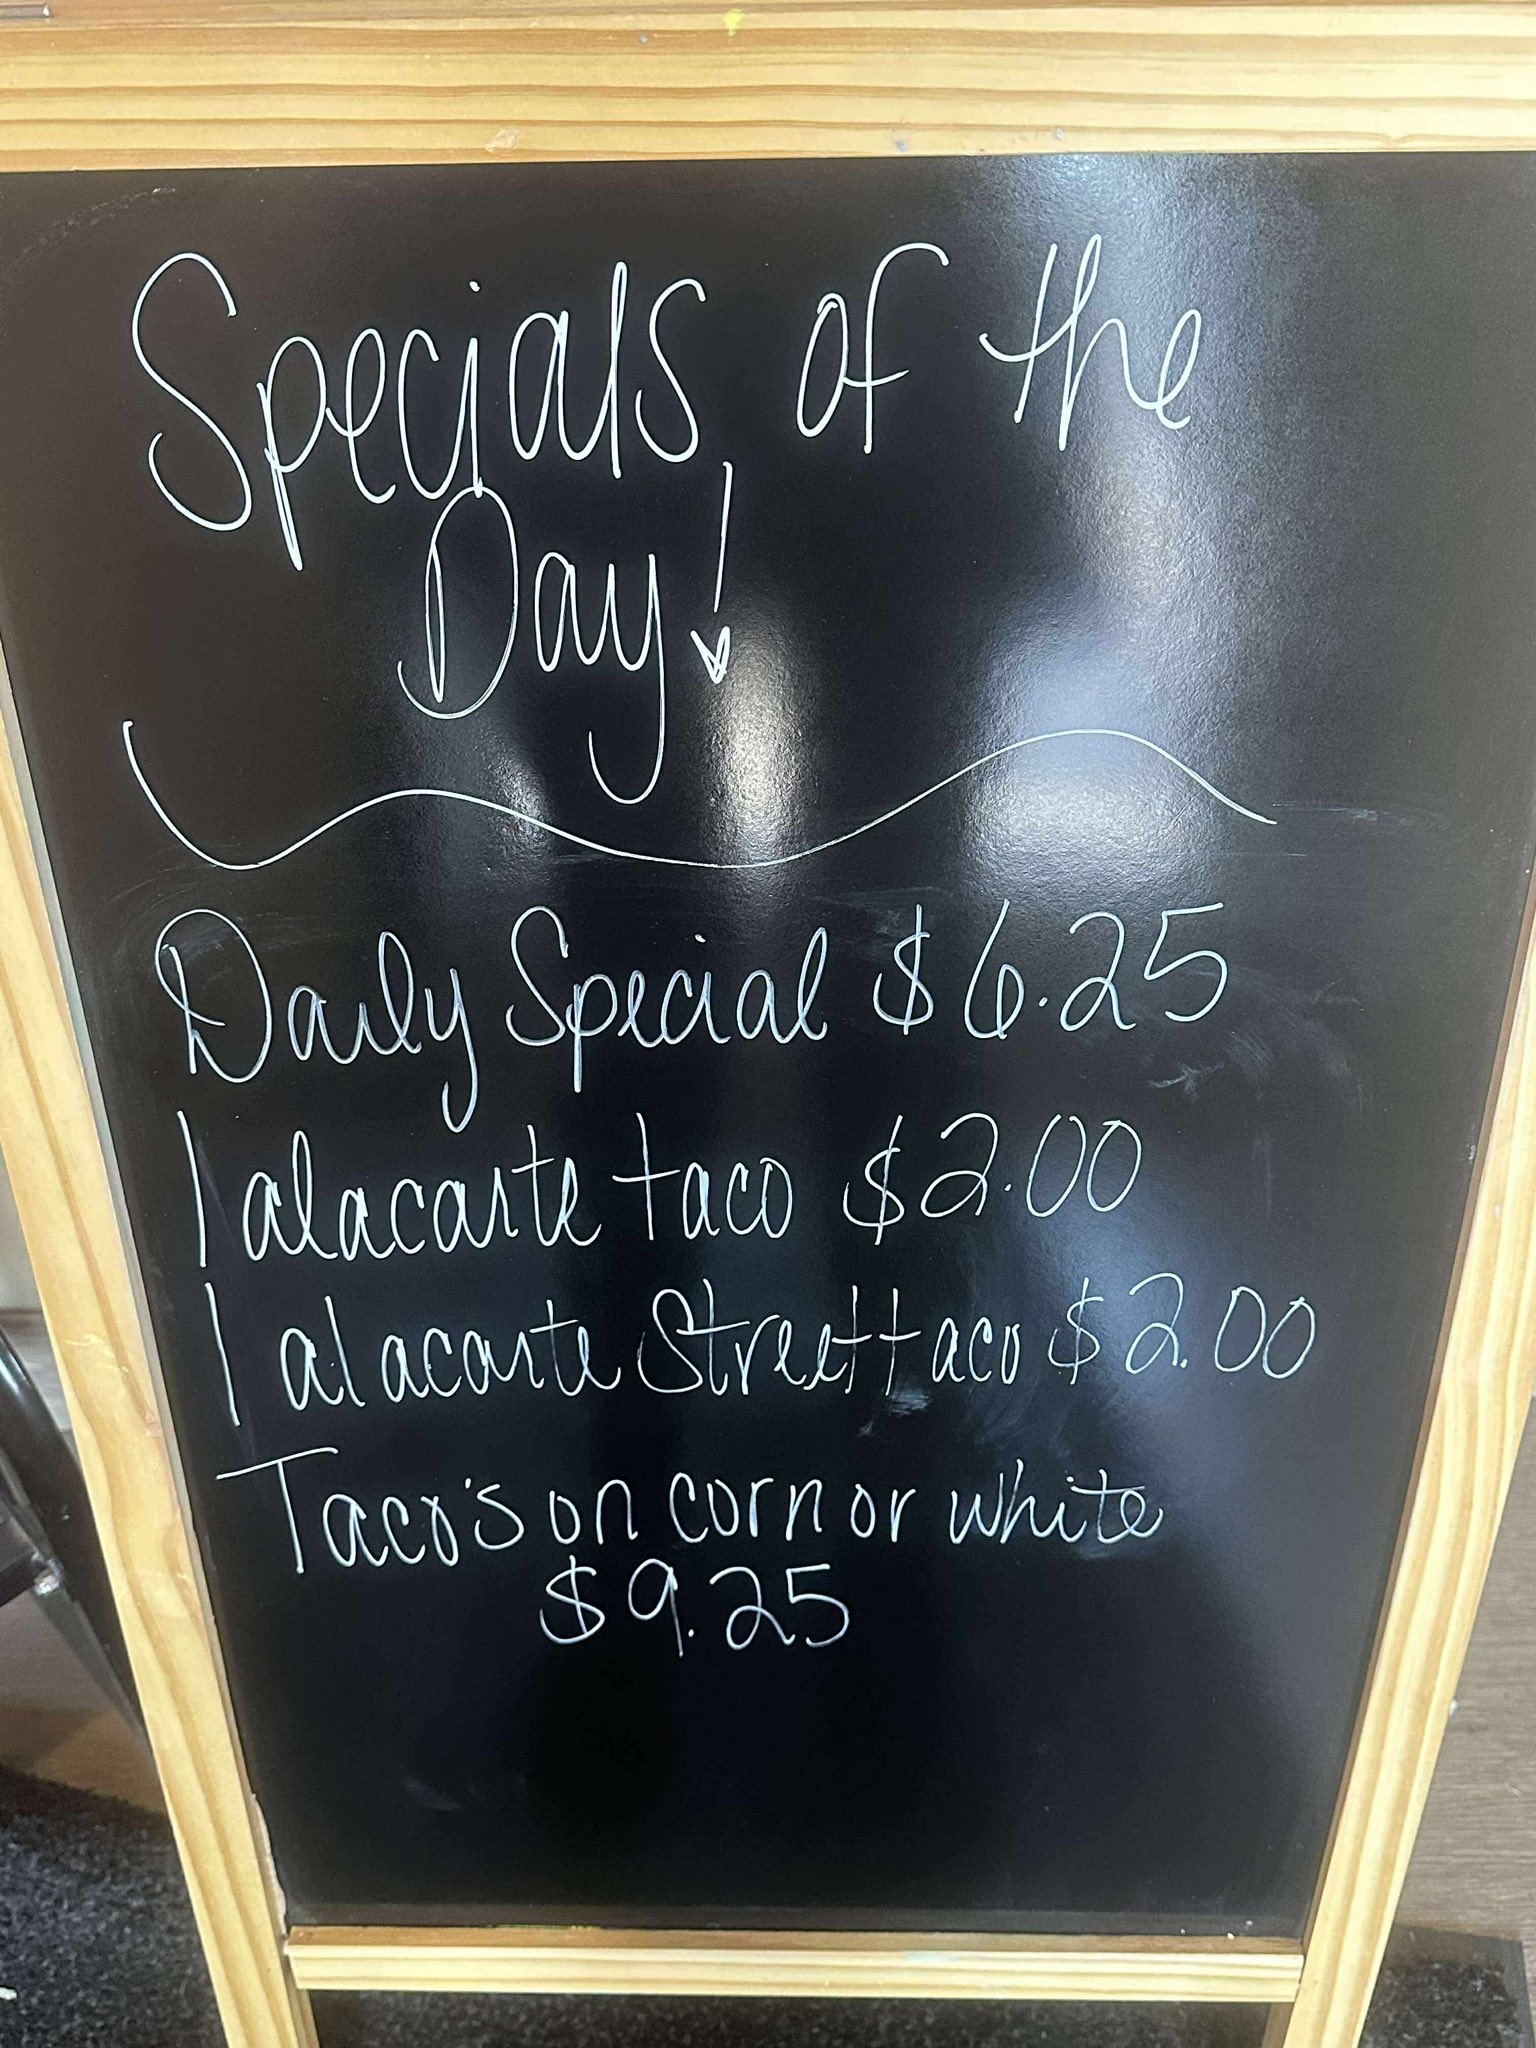 Specials of the
Day!
Daily Special $6.25
1 alacarte taco $2.00
1 alacarte Street taco $2.00
Taco's on corn or white
$9.25